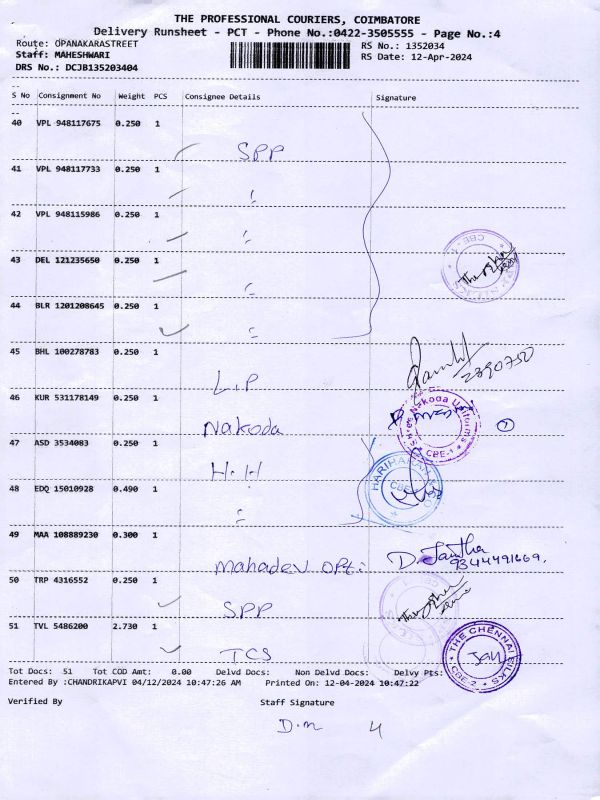 THE PROFESSIONAL COURIERS, COIMBATORE
Delivery Runsheet - PCT - Phone No.:0422-3505555 - Page No.:4
Route: OPANAKARASTREET
RS No.: 1352034
Staff: MAHESHWARI
RS Date: 12-Apr-2024
DRS No.: DCJB135203404
S No Consignment No Weight PCS Consignee Details Signature
40 VPL 948117675 0.250 1
SPP
41 VPL 948117733 0.250 1
42 VPL 948115986 0.250 1
43 DEL 121235650 0.250 1
44 BLR 1201208645 0.250 1
45 BHL 100278783 0.250 1
L.P
2390750
46 KUR 531178149 0.250 1
Nakoda
Shree Nakoda Uniforms
CBE-1
47 ASD 3534083 0.250 1
H.H
HARIHARAN
CBE
48 EDQ 15010928 0.490 1
49 MAA 108889230 0.300 1
mahadev opt: D. 
9344491669.
50 TRP 4316552 0.250 1
SPP
51 TVL 5486200 2.730 1
TCS
THE CHENNAI SILKS
CBE-2
Tot Docs: 51 Tot COD Amt: 0.00 Delvd Docs: Non Delvd Docs: Delvy Pts:
Entered By :CHANDRIKAPVI 04/12/2024 10:47:26 AM Printed On: 12-04-2024 10:47:22
Verified By Staff Signature
D.m 4